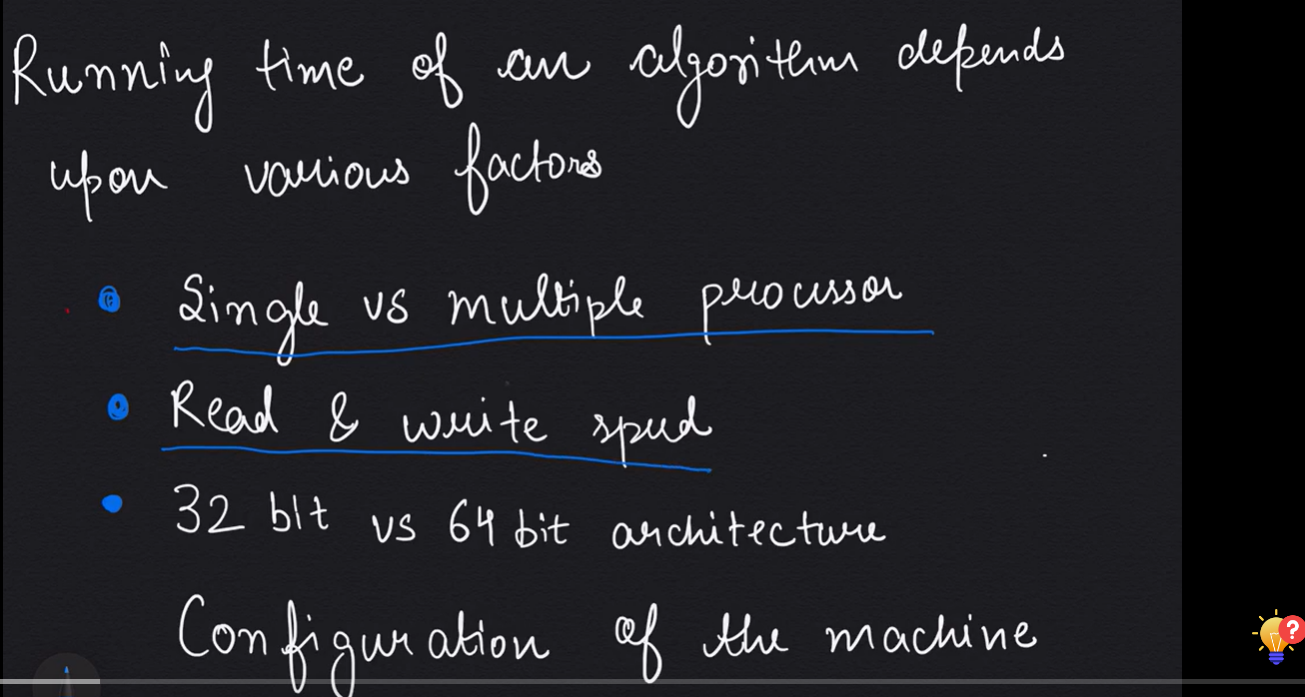 Running time of an algorithm depends
upon various factors
Single vs multiple processor
Read & write speed
32 bit vs 64 bit architecture
Configuration of the machine
?